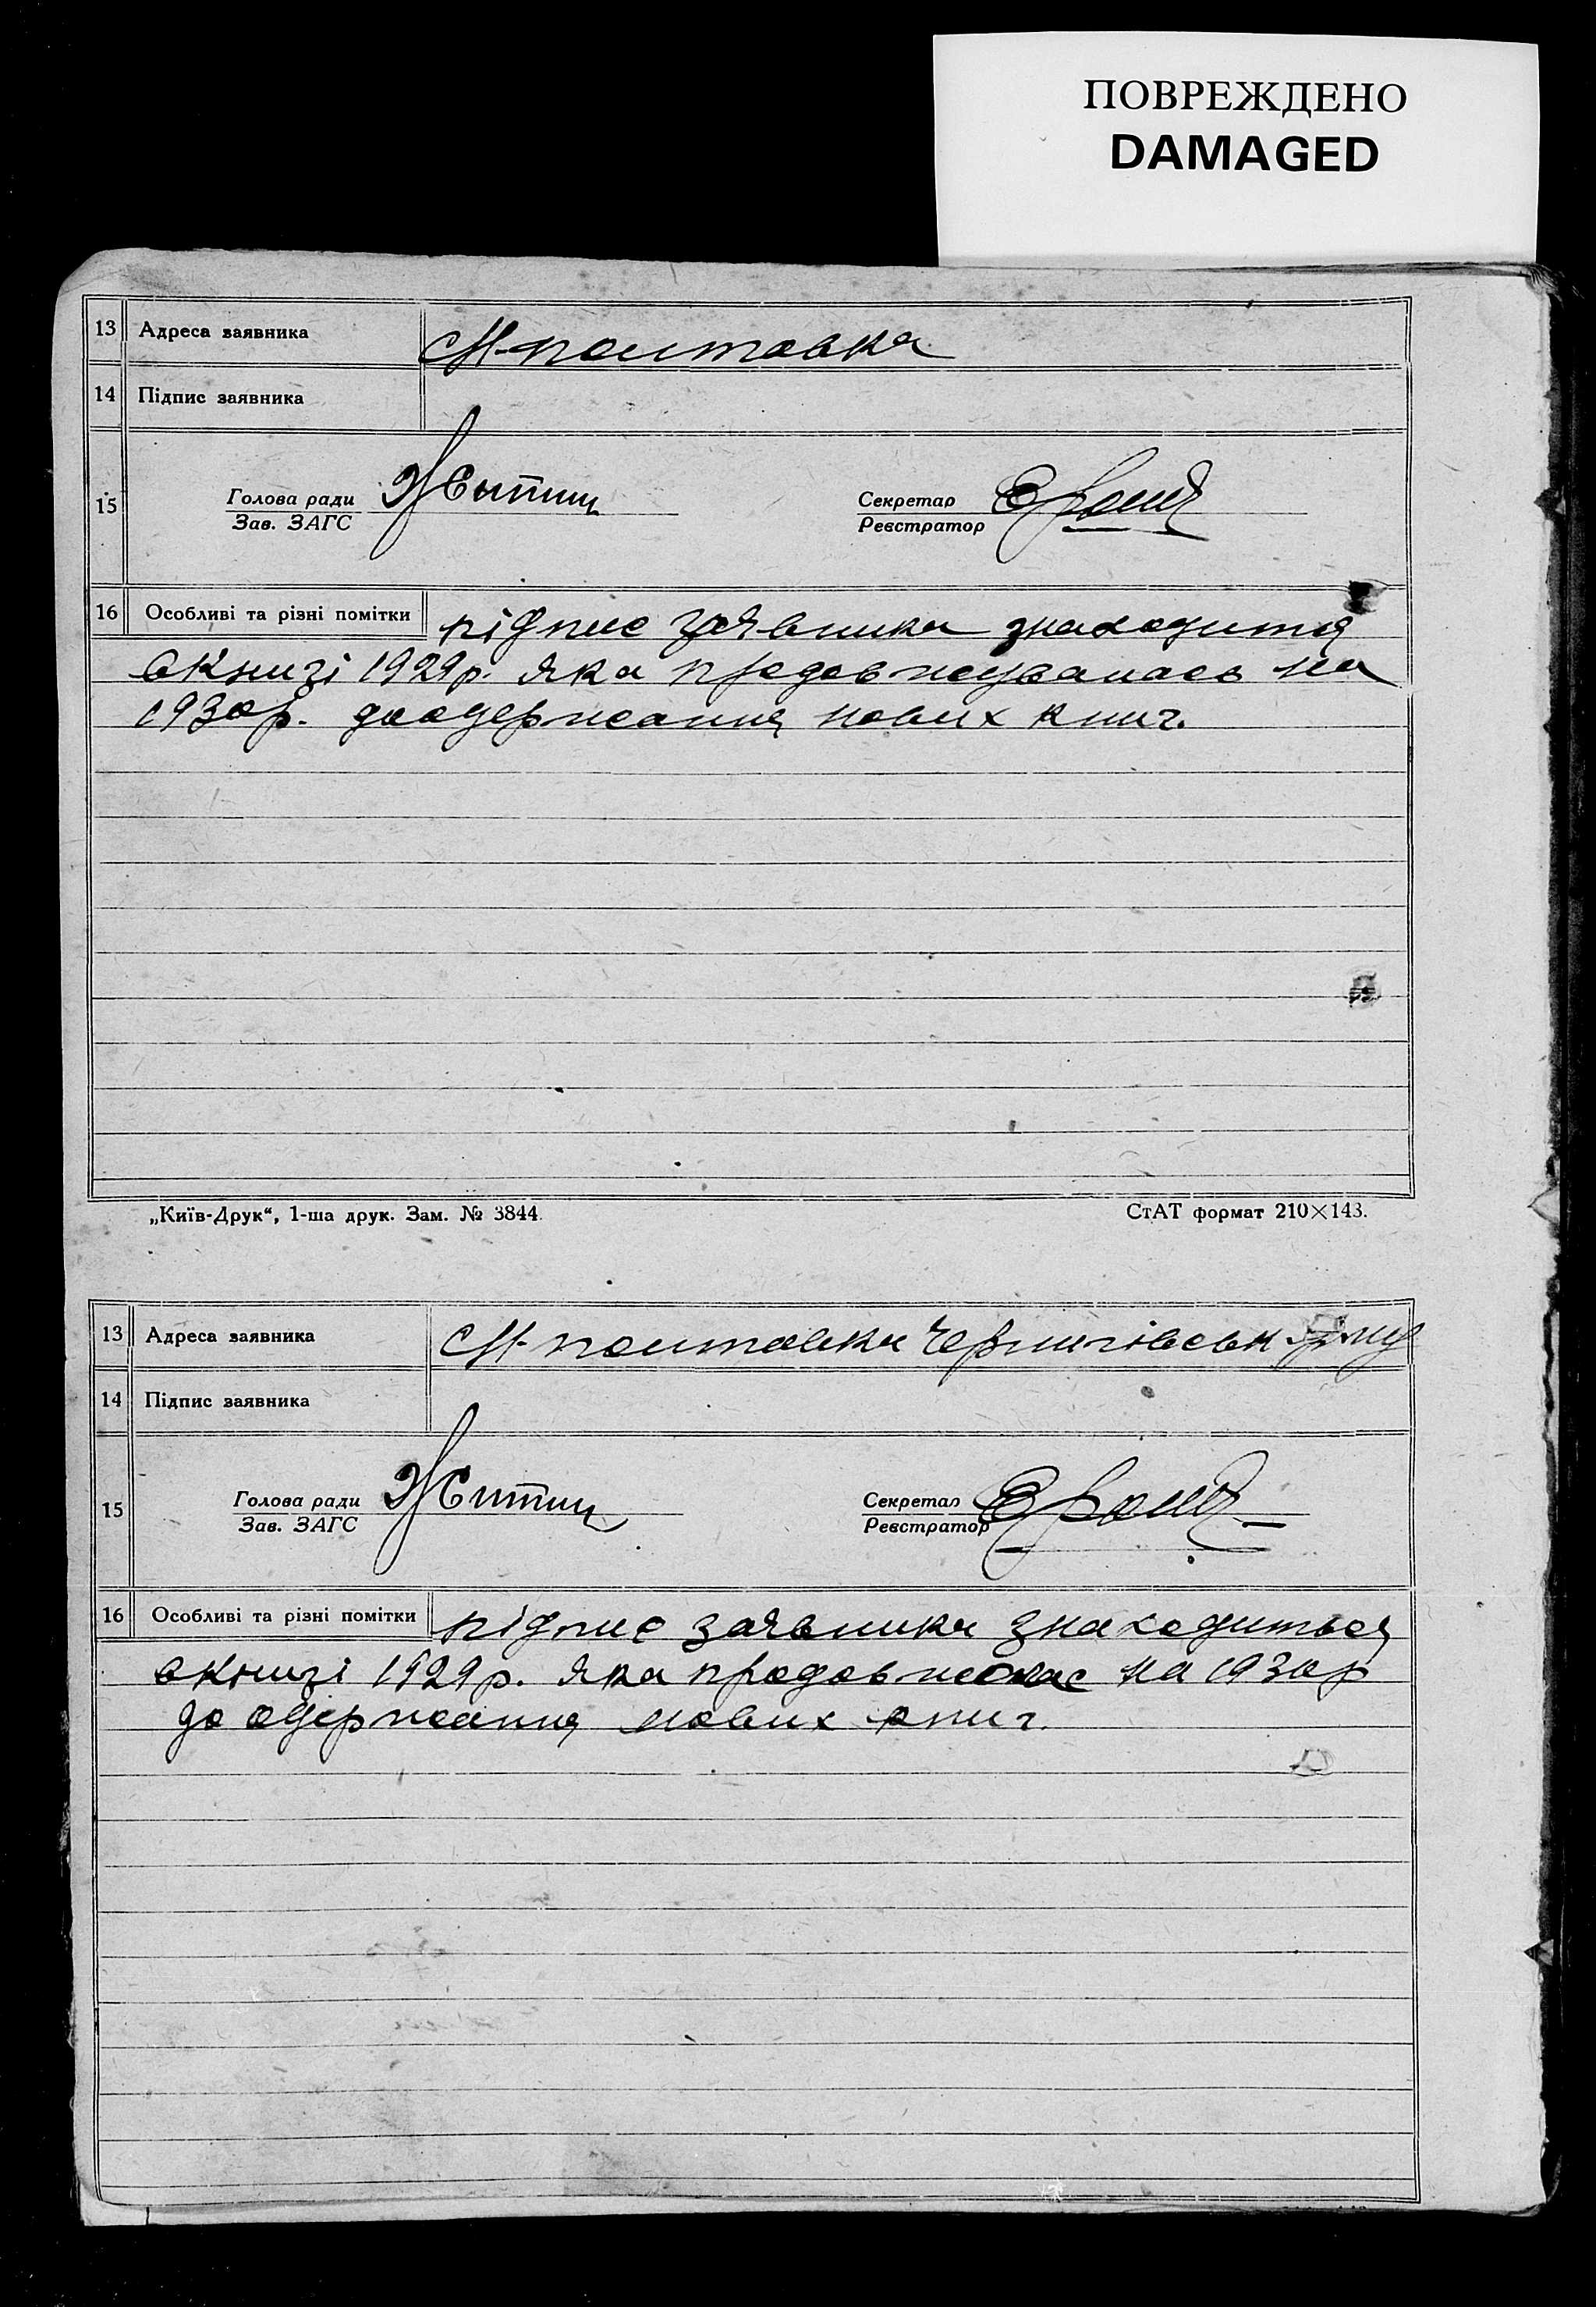 ПОВРЕЖДЕНО
DAMAGED
13 Адреса заявника
14 Підпис заявника
15 Голова ради Секретар
Зав. ЗАГС Реєстратор
16 Особливі та різні помітки підпис заявника знаходитця
в книзі 1929р. яка продовжувалась на
1930р. до одержання нових книг.
„Київ-Друк“, 1-ша друк. Зам. № 3844. СтАТ формат 210×143.
13 Адреса заявника
14 Підпис заявника
15 Голова ради Секретар
Зав. ЗАГС Реєстратор
16 Особливі та різні помітки підпис заявника знаходиться
в книзі 1929р. яка на 1930р
до одержання нових книг.